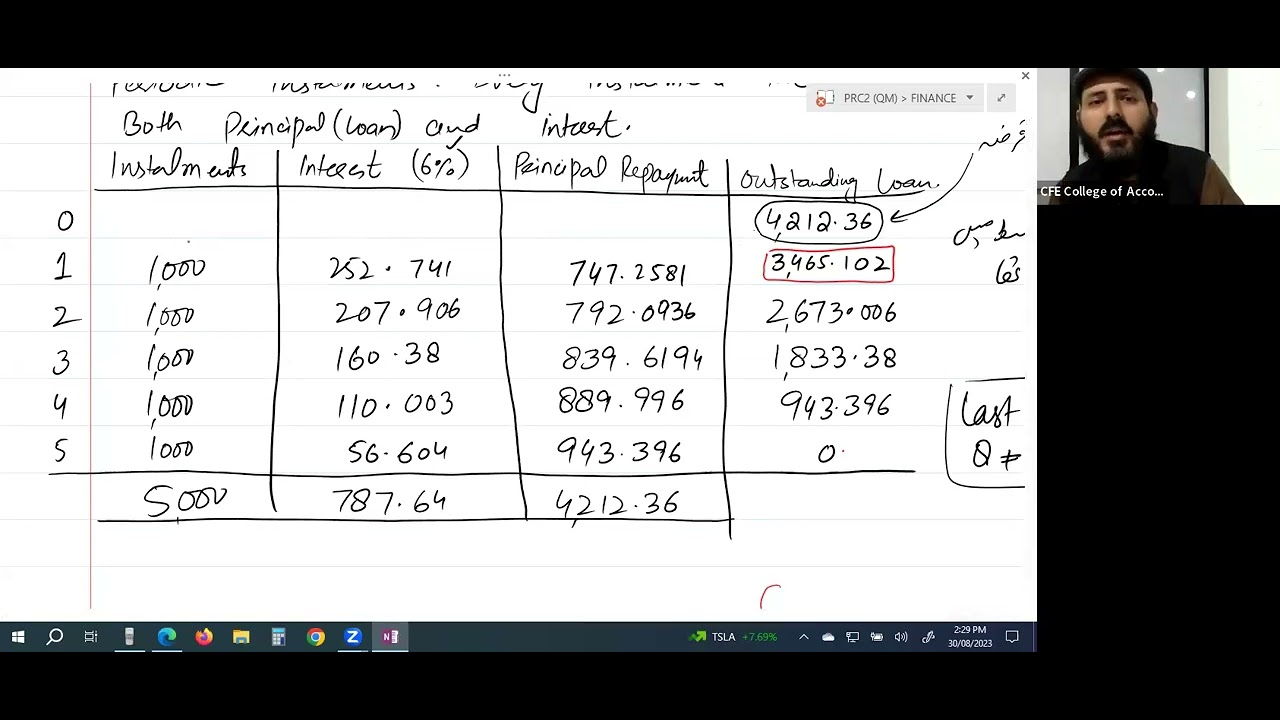 Periodic Instalments. Every Instalment
PRC2 (QM) > FINANCE
Both Principal (loan) and interest.
CFE College of Acco...
Instalments Interest (6%) Principal Repaymnt Outstanding Loan.
قرضہ
0 4,212.36
1 1,000 252.741 747.2581 3,465.102
2 1,000 207.906 792.0936 2,673.006
3 1,000 160.38 839.6194 1,833.38
4 1,000 110.003 889.996 943.396
last
5 1000 56.604 943.396 0
Q #
5,000 787.64 4,212.36
TSLA +7.69%
2:29 PM
30/08/2023